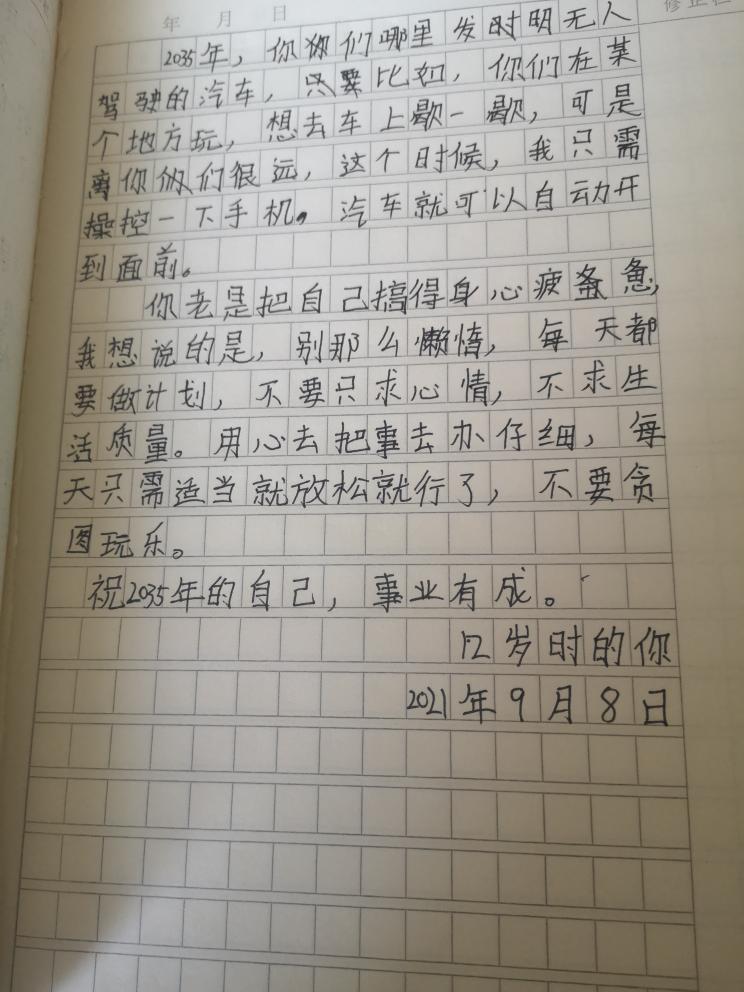 年 月 日
修正栏
2035年，你你们哪里发时明无人
驾驶的汽车，只要比如，你们在某
个地方玩，想去车上歇一歇，可是
离你你们很远，这个时候，我只需
操控一下手机。汽车就可以自动开
到面前。
你老是把自己搞得身心疲惫，
我想说的是，别那么懒惰，每天都
要做计划，不要只求心情，不求生
活质量。用心去把事去办仔细，每
天只需适当就放松就行了，不要贪
图玩乐。
祝2035年的自己，事业有成。
12岁时的你
2021年9月8日